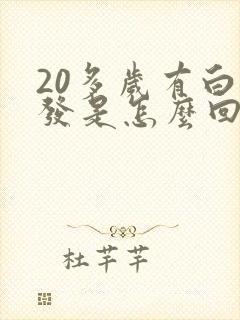 20多歲有白
發是怎麼回
杜芊芊